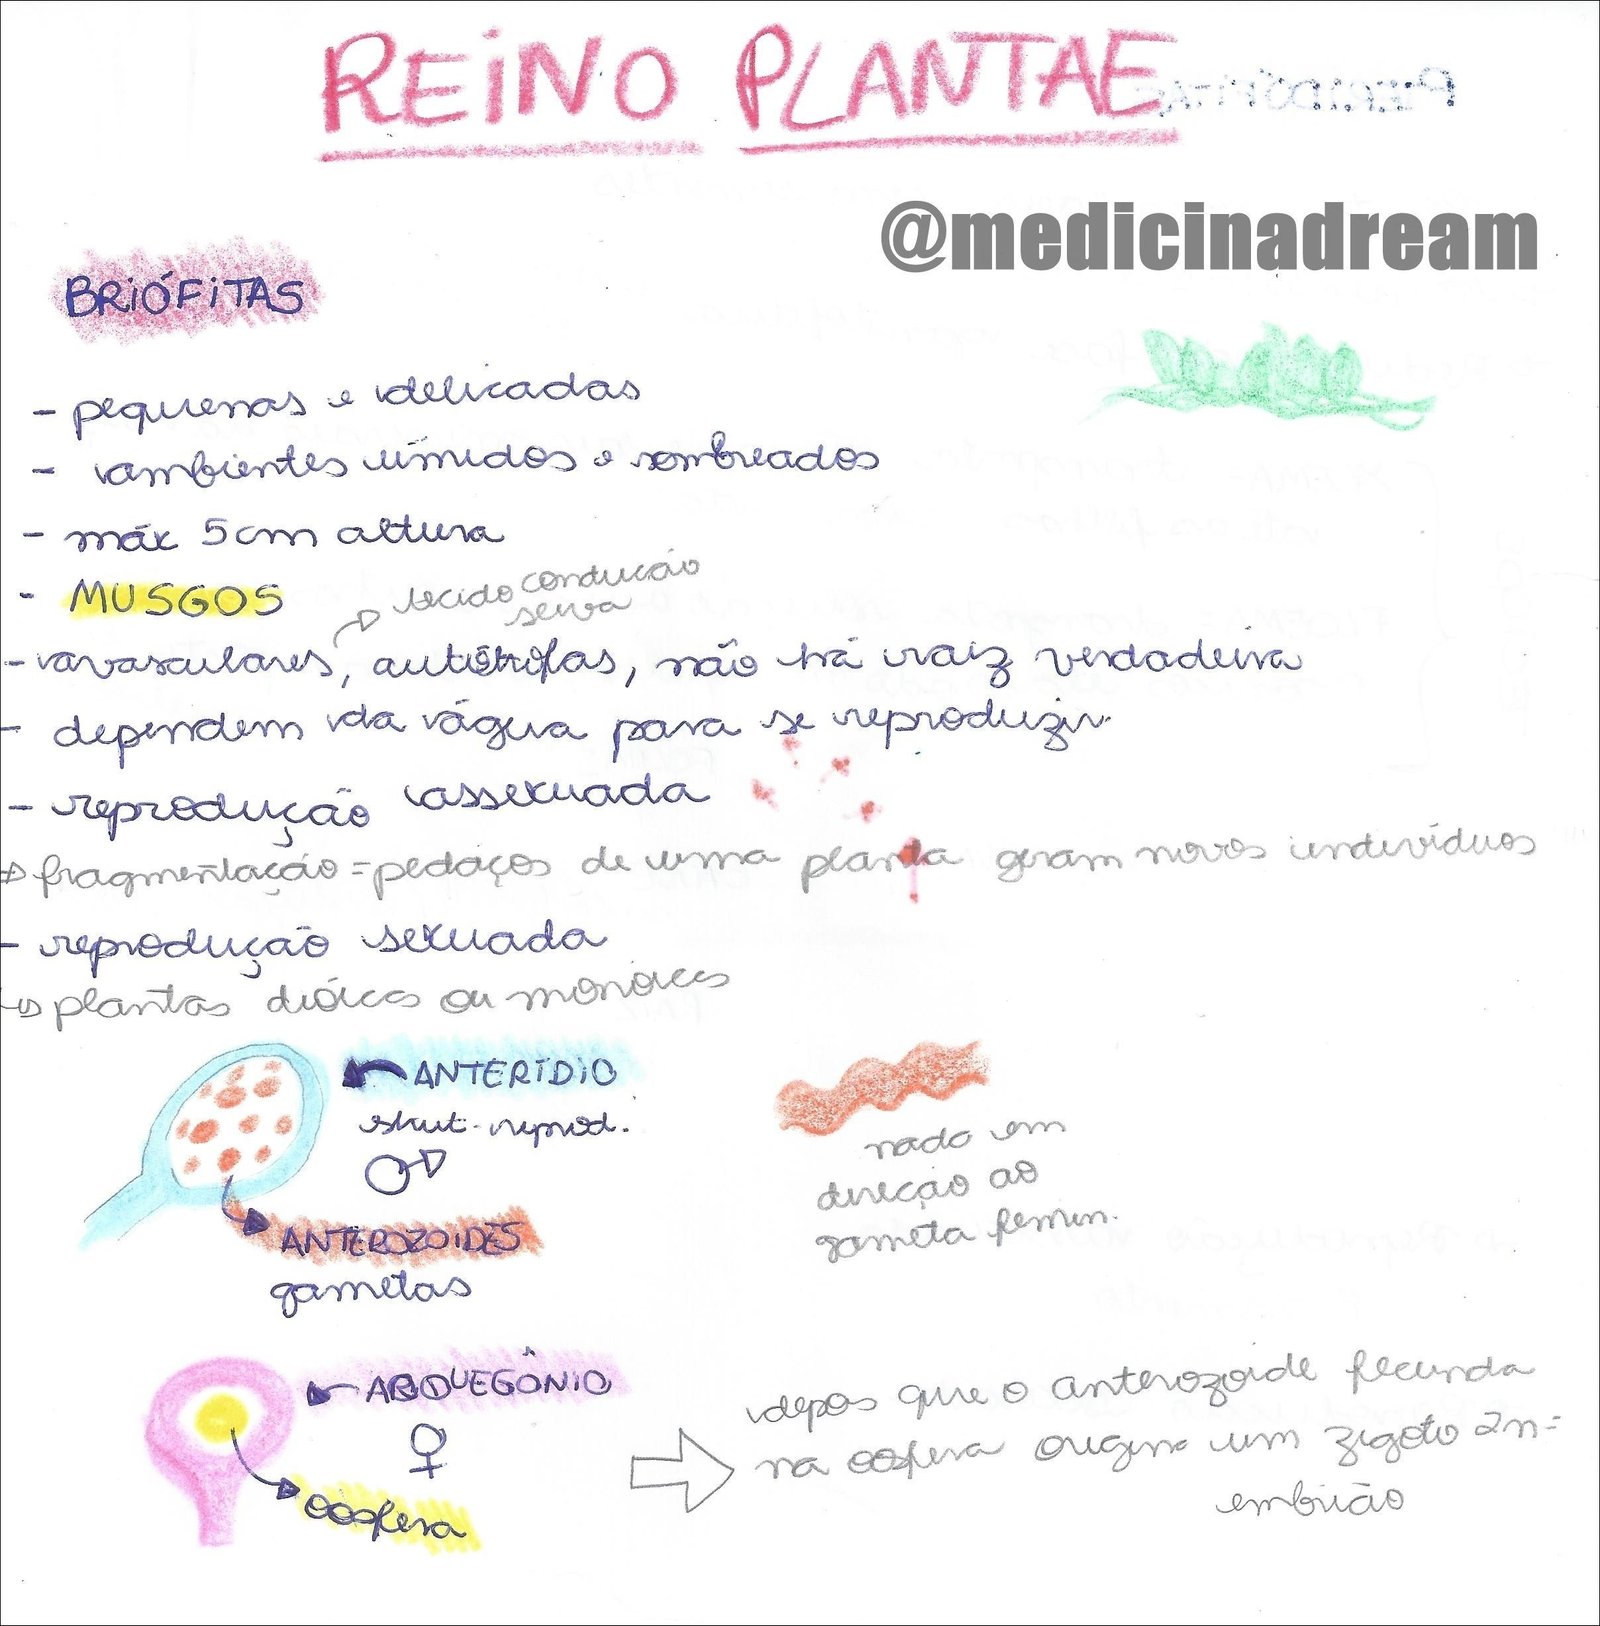 REINO PLANTAE
@medicinadream
BRIÓFITAS
- pequenas e delicadas
- ambientes úmidos e sombreados
- máx 5cm altura
- MUSGOS
tecido condução
seiva
- avasculares, autótrofas, não há raiz verdadeira
- dependem da água para se reproduzir
- reprodução assexuada
fragmentação = pedaços de uma planta geram novos indivíduos
- reprodução sexuada
plantas dióicas ou monóicas
ANTERÍDIO
strut. reprod.
♂
nado em
direção ao
gameta femin.
ANTEROZOIDES
gametas
ARQUEGÔNIO
♀
depois que o anterozoide fecunda
na oosfera origina um zigoto 2n =
embrião
oosfera